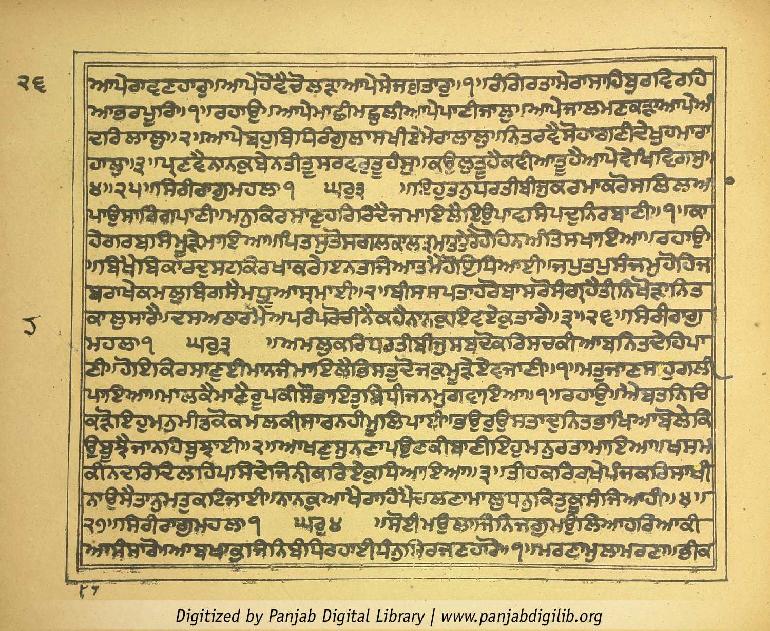 ੨੬
ਆਪੇਰਾਵਣਹਾਰੁ॥ਆਪੇਹੋਵੈਚੋਲੜਾਆਪੇਸੇਜਭਤਾਰੁ॥੧॥ਰੰਗਿਰਤਾਮੇਰਾਸਾਹਿਬੁਰਵਿਰਹਿ
ਆਭਰਪੂਰਿ॥੧॥ਰਹਾਉ॥ਆਪੇਮਾਛੀਮਛੁਲੀਆਪੇਪਾਣੀਜਾਲੁ॥ਆਪੇਜਾਲਮਣਕੜਾਆਪੇਅੰ
ਦਰਿਲਾਲੁ॥੨॥ਆਪੇਬਹੁਬਿਧਿਰੰਗੁਲਾਸਖੀਏਮੇਰਾਲਾਲੁ॥ਨਿਤਰਵੈਸੋਹਾਗਣੀਦੇਖੁਹਮਾਰਾ
ਹਾਲੁ॥੩॥ਪ੍ਰਣਵੈਨਾਨਕੁਬੇਨਤੀਤੂਸਰਵਰੁਤੂਹੰਸੁ॥ਕਉਲੁਤੂਹੈਕਵੀਆਤੂਹੈਆਪੇਵੇਖਿਵਿਗਸੁ॥
੪॥੨੫॥ਸਿਰੀਰਾਗੁਮਹਲਾ੧ ਘਰੁ੩ ॥ਇਹੁਤਨੁਧਰਤੀਬੀਜੁਕਰਮਾਕਰੋਸਲਿਲਆ
ਪਾਉਸਾਰਿੰਗਪਾਣੀ॥ਮਨੁਕਿਰਸਾਣੁਹਰਿਰਿਦੈਜਮਾਇਲੈਇਉਪਾਵਸਿਪਦੁਨਿਰਬਾਣੀ॥੧॥ਕਾ
ਹੇਗਰਬਸਿਮੂੜੇਮਾਇਆ॥ਪਿਤਸੁਤੋਸਗਲਕਾਲਤ੍ਰਮਾਤਾਤੇਰੇਹੋਹਿਨਅੰਤਿਸਖਾਇਆ॥ਰਹਾਉ
॥ਬਿਖੈਬਿਕਾਰਦੁਸਟਕਿਰਖਾਕਰੇਇਨਤਜਿਆਤਮੈਹੋਇਧਿਆਈ॥ਜਪੁਤਪੁਸੰਜਮੁਹੋਹਿਜ
ਬਰਾਖੇਕਮਲੁਬਿਗਸੈਮਧੁਆਸ੍ਰਮਾਈ॥੨॥ਬੀਸਸਪਤਾਹਰੋਬਾਸਰੋਸੰਗ੍ਰਹੈਤੀਨਿਖੋੜਾਨਿਤ
ਕਾਲੁਸਾਰੈ॥ਦਸਅਠਾਰਮੈਅਪਰੰਪਰੋਚੀਨੈਕਹੈਨਾਨਕੁਇਵਏਕੁਤਾਰੈ॥੩॥੨੬॥ਸਿਰੀਰਾਗੁ
ਮਹਲਾ੧ ਘਰੁ੩ ॥ਅਮਲੁਕਰਿਧਰਤੀਬੀਜੁਸਬਦੋਕਰਿਸਚਕੀਆਬਨਿਤਦੇਹਿਪਾ
ਣੀ॥ਹੋਇਕਿਰਸਾਣੁਈਮਾਨੁਜੰਮਾਇਲੈਭਿਸਤੁਦੋਜਕੁਮੂੜੇਏਵਜਾਣੀ॥੧॥ਮਤੁਜਾਣਸਹਿਗਲੀ
ਪਾਇਆ॥ਮਾਲਕੈਮਾਣੈਰੂਪਕੀਸੋਭਾਇਤੁਬਿਧੀਜਨਮੁਗਵਾਇਆ॥੧॥ਰਹਾਉ॥ਐਬਤਨਿਚਿ
ਕੜੋਇਹੁਮਨੁਮੀਡਕੋਕਮਲਕੀਸਾਰਨਹੀਮੂਲਿਪਾਈ॥ਭਉਰੁਉਸਤਾਦੁਨਿਤਭਾਖਿਆਬੋਲੇਕਿ
ਉਬੂਝੈਜਾਨਹਿਬੁਝਾਈ॥੨॥ਆਖਣੁਸੁਨਣਾਪਉਣਕੀਬਾਣੀਇਹੁਮਨੁਰਤਾਮਾਇਆ॥ਖਸਮ
ਕੀਨਦਰਿਦਿਲਹਿਪਸਿੰਦੇਜਿਨੀਕਰਿਏਕੁਧਿਆਇਆ॥੩॥ਤੀਹਕਰਿਰਖੇਪੰਜਕਰਿਸਾਥੀ
ਨਾਉਸੈਤਾਨੁਮਤੁਕਟਿਜਾਈ॥ਨਾਨਕੁਆਖੈਰਾਹਿਪੈਚਲਣਾਮਾਲੁਧਨੁਕਿਤਕੂਸੰਜਿਆਹੀ॥੪॥
੨੭॥ਸਿਰੀਰਾਗੁਮਹਲਾ੧ ਘਰੁ੪ ॥ਸੋਈਮਉਲਾਜਿਨਿਜਗੁਮਉਲਿਆਹਰਿਆਕੀ
ਆਸੰਸਾਰੋ॥ਆਬਖਾਕੁਜਿਨਿਬੰਧਿਰਹਾਈਧੰਨੁਸਿਰਜਣਹਾਰੋ॥੧॥ਮਰਣਾਮੁਲਾਮਰਣਾ॥ਭੀਕ
Digitized by Panjab Digital Library | www.panjabdigilib.org